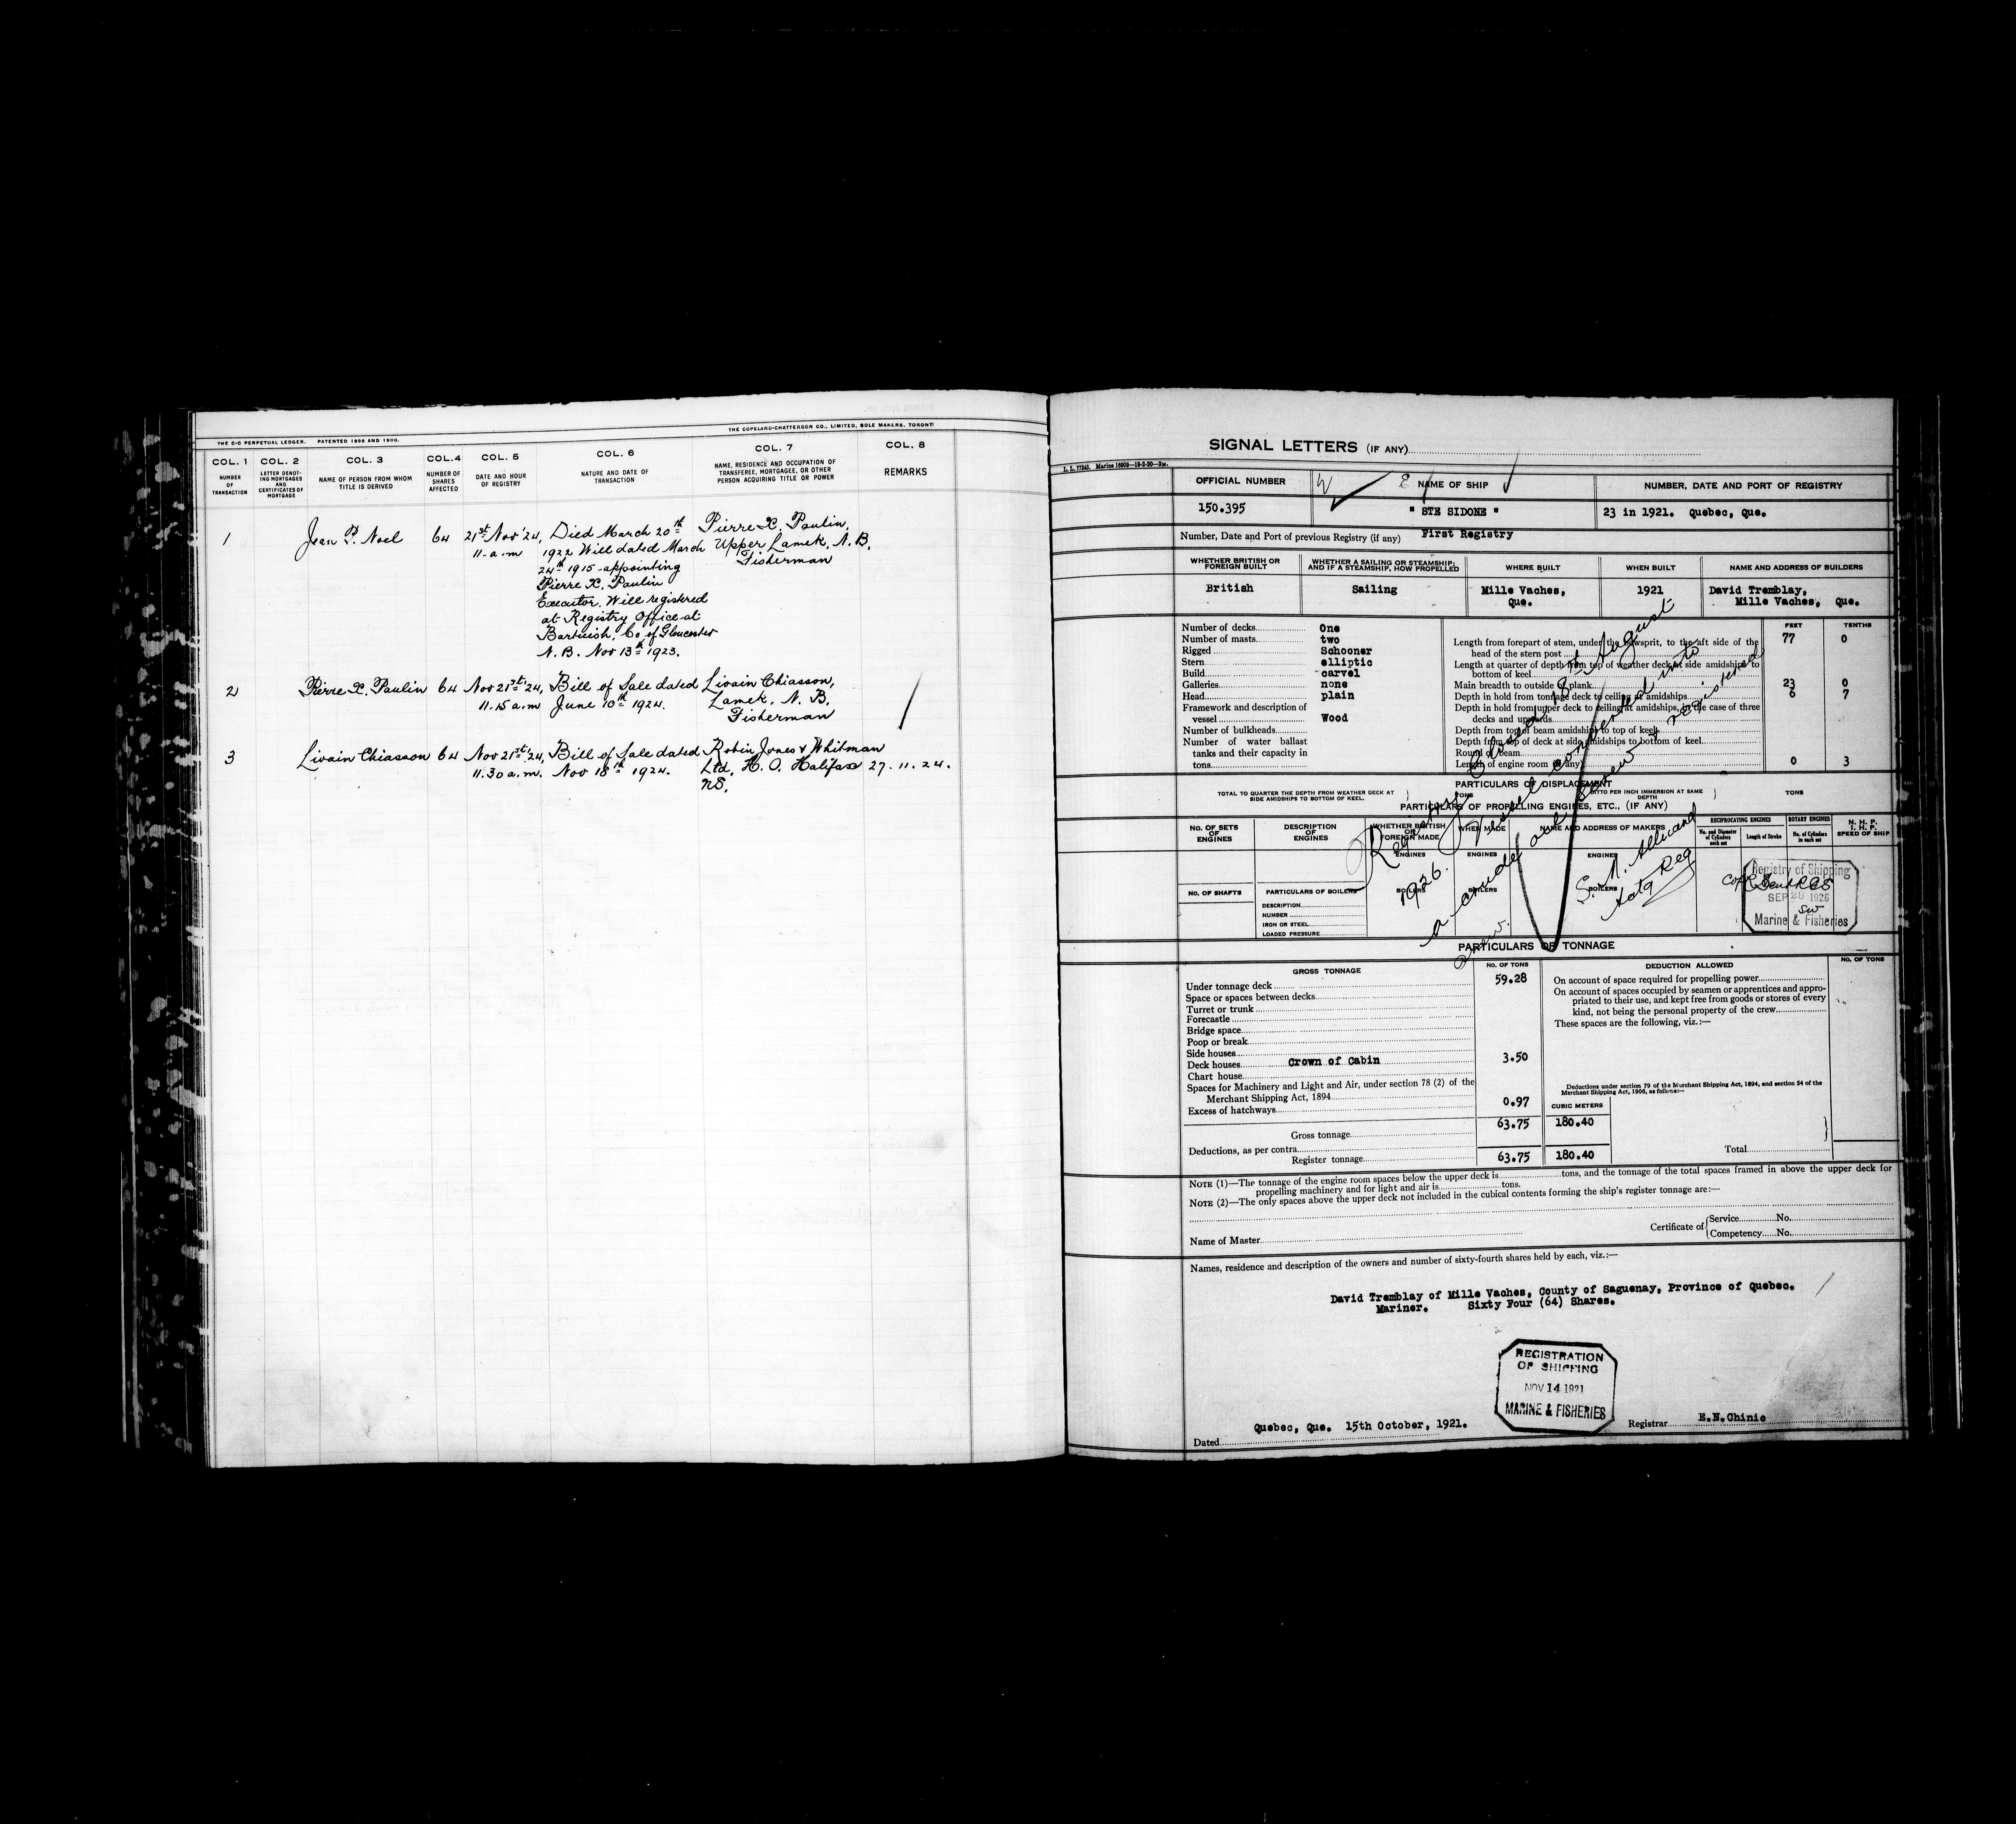 THE C-C PERPETUAL LEDGER. PATENTED 1896 AND 1900.
THE COPELAND-CHATTERSON CO., LIMITED, SOLE MAKERS, TORONT
COL. 1 COL. 2 COL. 3 COL. 4 COL. 5 COL. 6 COL. 7 COL. 8
NUMBER OF TRANSACTION
LETTER DENOT-ING MORTGAGES AND CERTIFICATES OF MORTGAGE
NAME OF PERSON FROM WHOM TITLE IS DERIVED
NUMBER OF SHARES AFFECTED
DATE AND HOUR OF REGISTRY
NATURE AND DATE OF TRANSACTION
NAME, RESIDENCE AND OCCUPATION OF TRANSFEREE, MORTGAGEE, OR OTHER PERSON ACQUIRING TITLE OR POWER
REMARKS
1 Jean P. Noel 64 21st Nov '24, Died March 20th Pierre X. Paulin,
11.a.m 1922 Will dated March Upper Lamek, N.B.
24th 1915 appointing Fisherman
Pierre X. Paulin
Executor. Will registered
at Registry Office at
Co of Gloucester
N.B. Nov 13th 1923.
2 Pierre X. Paulin 64 Nov 21st '24, Bill of Sale dated Livain Chiasson,
11.15 a.m June 10th 1924. Lamek, N.B.
Fisherman
3 Livain Chiasson 64 Nov 21st '24, Bill of Sale dated Robin Jones & Whitman
11.30 a.m. Nov 18th 1924. Ltd, H.O. Halifax 27.11.24.
NS.
SIGNAL LETTERS (IF ANY)
I. L. 77243. Marine 16909—19-2-20—3M.
OFFICIAL NUMBER NAME OF SHIP NUMBER, DATE AND PORT OF REGISTRY
150.395 " STE SIDONE " 23 in 1921. Quebec, Que.
Number, Date and Port of previous Registry (if any) First Registry
WHETHER BRITISH OR FOREIGN BUILT
WHETHER A SAILING OR STEAMSHIP; AND IF A STEAMSHIP, HOW PROPELLED
WHERE BUILT
WHEN BUILT
NAME AND ADDRESS OF BUILDERS
British Sailing Mille Vaches, 1921 David Tremblay,
Que. Mille Vaches, Que.
FEET TENTHS
Number of decks One
Number of masts two
Rigged Schooner
Stern elliptic
Build carvel
Galleries none
Head plain
Framework and description of
vessel Wood
Number of bulkheads
Number of water ballast
tanks and their capacity in
tons
Length from forepart of stem, under the bowsprit, to the aft side of the
head of the stern post 77 0
Length at quarter of depth from top of weather deck at side amidships to
bottom of keel
Main breadth to outside of plank 23 0
Depth in hold from tonnage deck to ceiling at amidships 6 7
Depth in hold from upper deck to ceiling at amidships, in the case of three
decks and upwards
Depth from top of beam amidships to top of keel
Depth from top of deck at side amidships to bottom of keel
Round of beam
Length of engine room (if any) 0 3
Registry Closed 18th August
1926. Vessel converted into
a crude oil screw & registered
anew.
Actg Reg
PARTICULARS OF DISPLACEMENT
TOTAL TO QUARTER THE DEPTH FROM WEATHER DECK AT SIDE AMIDSHIPS TO BOTTOM OF KEEL. TONS
DITTO PER INCH IMMERSION AT SAME DEPTH TONS
PARTICULARS OF PROPELLING ENGINES, ETC., (IF ANY)
No. OF SETS OF ENGINES
DESCRIPTION OF ENGINES
WHETHER BRITISH OR FOREIGN MADE
WHEN MADE
NAME AND ADDRESS OF MAKERS
RECIPROCATING ENGINES
No. and Diameter of Cylinders each set
Length of Stroke
ROTARY ENGINES
No. of Cylinders in each set
N. H. P.
I. H. P.
SPEED OF SHIP
ENGINES ENGINES ENGINES
No. OF SHAFTS
PARTICULARS OF BOILERS
BOILERS BOILERS BOILERS
DESCRIPTION
NUMBER
IRON OR STEEL
LOADED PRESSURE
Registry of Shipping
SEP 28 1926
Marine & Fisheries
PARTICULARS OF TONNAGE
GROSS TONNAGE No. OF TONS DEDUCTION ALLOWED No. OF TONS
Under tonnage deck 59.28
Space or spaces between decks
Turret or trunk
Forecastle
Bridge space
Poop or break
Side houses
Deck houses Crown of Cabin 3.50
Chart house
Spaces for Machinery and Light and Air, under section 78 (2) of the
Merchant Shipping Act, 1894
Excess of hatchways 0.97
Gross tonnage 63.75 180.40
Deductions, as per contra
Register tonnage 63.75 180.40
On account of space required for propelling power
On account of spaces occupied by seamen or apprentices and appro-
priated to their use, and kept free from goods or stores of every
kind, not being the personal property of the crew
These spaces are the following, viz.:—
Deductions under section 79 of the Merchant Shipping Act, 1894, and section 54 of the
Merchant Shipping Act, 1906, as follows:—
CUBIC METERS
Total
NOTE (1)—The tonnage of the engine room spaces below the upper deck is tons, and the tonnage of the total spaces framed in above the upper deck for
propelling machinery and for light and air is tons.
NOTE (2)—The only spaces above the upper deck not included in the cubical contents forming the ship's register tonnage are:—
Name of Master
Certificate of Service No.
Competency No.
Names, residence and description of the owners and number of sixty-fourth shares held by each, viz.:—
David Tremblay of Mille Vaches, County of Saguenay, Province of Quebec.
Mariner. Sixty Four (64) Shares.
REGISTRATION
OF SHIPPING
NOV 14 1921
MARINE & FISHERIES
Dated Quebec, Que. 15th October, 1921.
Registrar E.N.Chinic